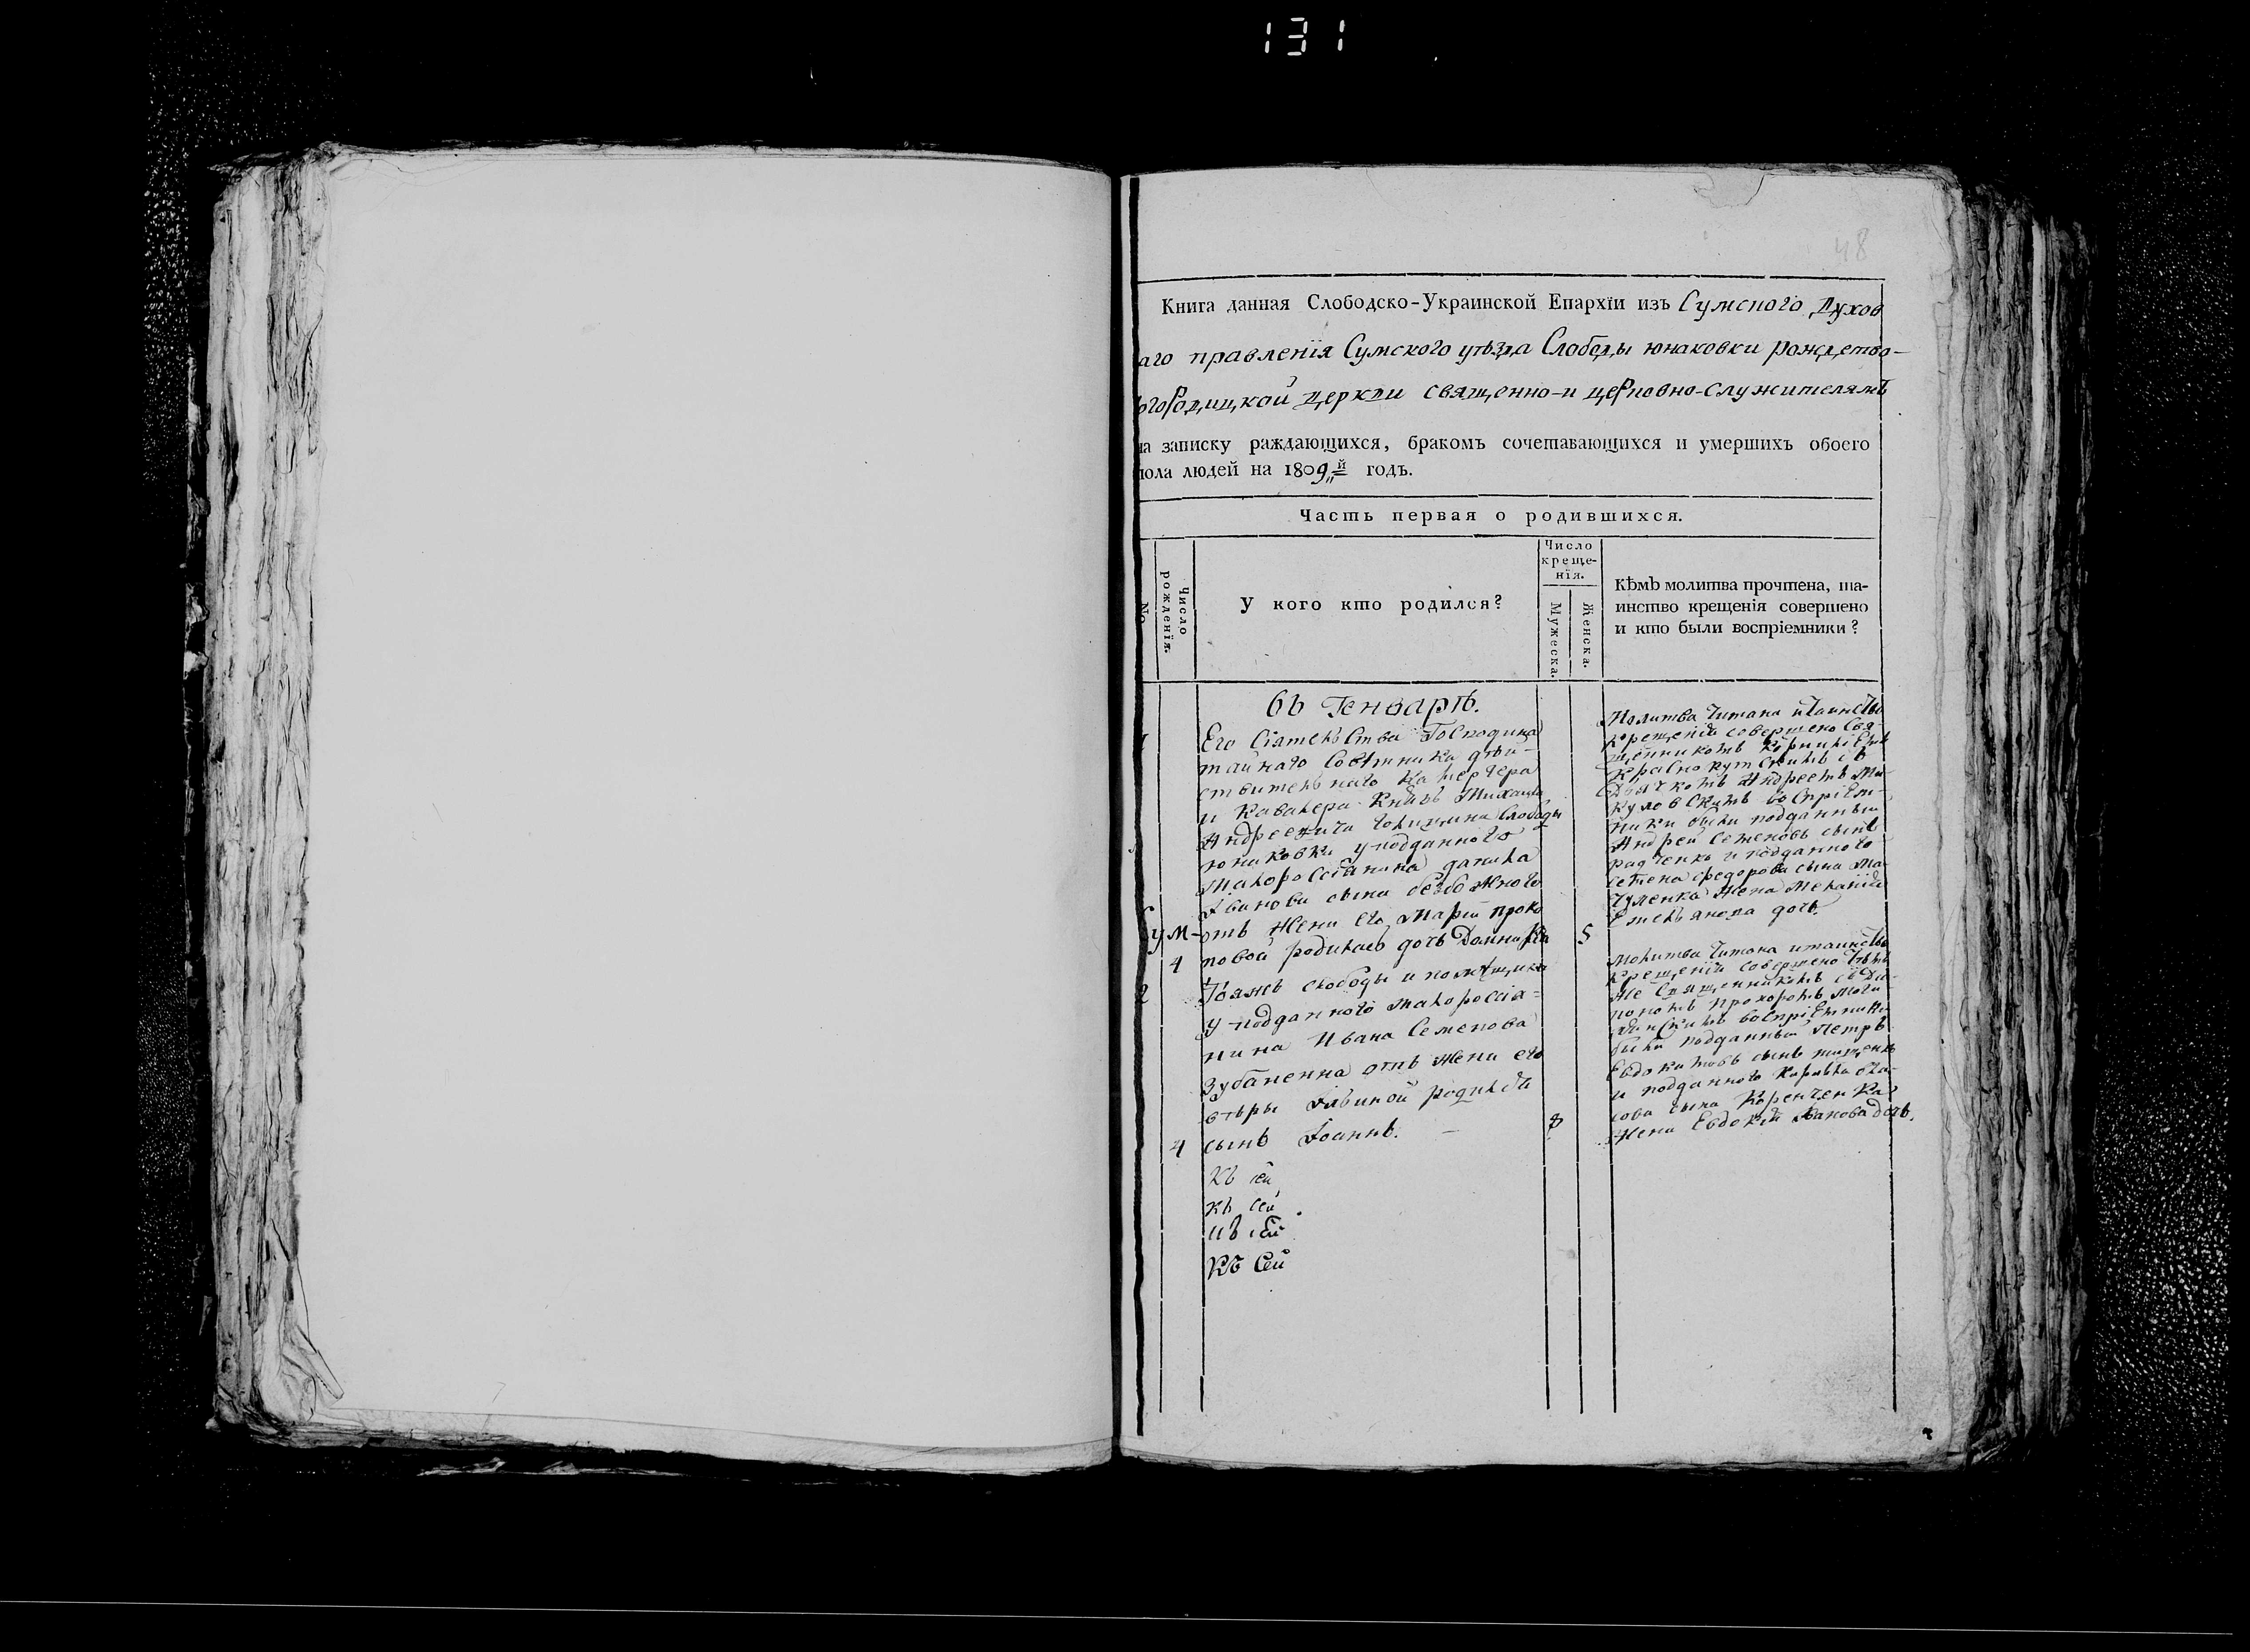 131
48
Книга данная Слободско-Украинской Епархїи изъ Сумского Духов
аго правленїя Сумского уѣзда Слободы юнаковки рождество-
огородицкой церкви священно-и церковно-служителямъ
на записку раждающихся, бракомъ сочетавающихся и умершихъ обоего
пола людей на 1809й годъ.
Часть первая о родившихся.
No
Число рожденїя.
У кого кто родился?
Число креще-нїя.
Мужеска.
Женска.
Кѣмъ молитва прочтена, та-
инство крещенія совершено
и кто были воспріемники?
Въ Генварѣ.
1
Его Сіятельства Господина
тайнаго Совѣтника дѣй-
ствительнаго Камергера
и Кавалера Князь Михаила
Андреевича Голицина Слободы
юнаковки у подданного
Малороссіянина данила
Іванова сына безбожного
Сум-
отъ жены его Маріи проко
4
повой родилась дочь Домникіа
5
Молитва Читана и таинство
крещенія совершено Свя-
щенникомъ Корниліемъ
Краснокутскимъ съ
Дьячкомъ Андреемъ Ми-
куловскимъ воспріем-
ники были подданный
Андрей Семеновъ сынъ
радченко и подданного
Семена федорова сына Ма-
чуленка жена Меланія
Емельянова дочь.
2
Тояжъ слободы и помѣщика
у подданного малороссія-
нина Ивана Семенова
Зубаненка отъ жены его
4
сынъ Іоаннъ.
8
Молитва Читана и таинство
крещенія совершено тѣмъ
же Священникомъ съ Ди-
были подданный Петръ
Евдокимовъ сынъ
и подданного
сова сына Коренченка
жена Евдокія Іванова дочь.
Къ сей
къ сей
къ сей
Къ Сей